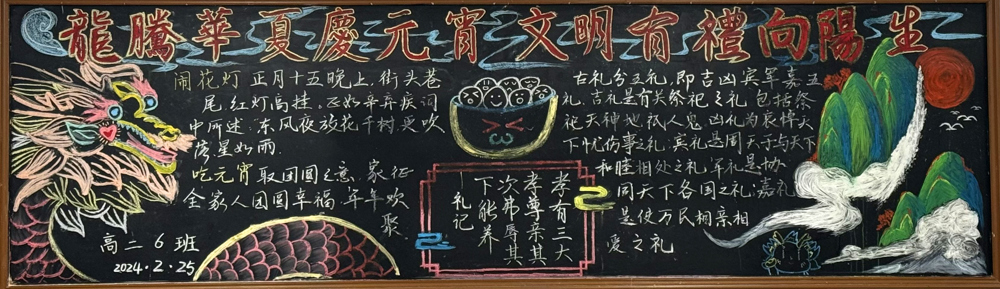 龍騰華夏慶元宵 文明有禮向陽生
闹花灯 正月十五晚上,街头巷
尾,红灯高挂。正如辛弃疾词
中所述:东风夜放花千树,更吹
落星如雨.
吃元宵 取团圆之意,象征
全家人团圆幸福,年年欢
聚.
高二6班
2024.2.25
孝有三大
孝尊亲其
次弗辱其
下能养
—礼记
古礼分五礼,即吉凶宾军嘉五
礼.吉礼是有关祭祀之礼,包括祭
祀天神地祇人鬼,凶礼为哀悼天
下忧伤事之礼,宾礼是周天子与天下
和睦相处之礼,军礼是协
同天下各国之礼,嘉礼
是使万民相亲相
爱之礼